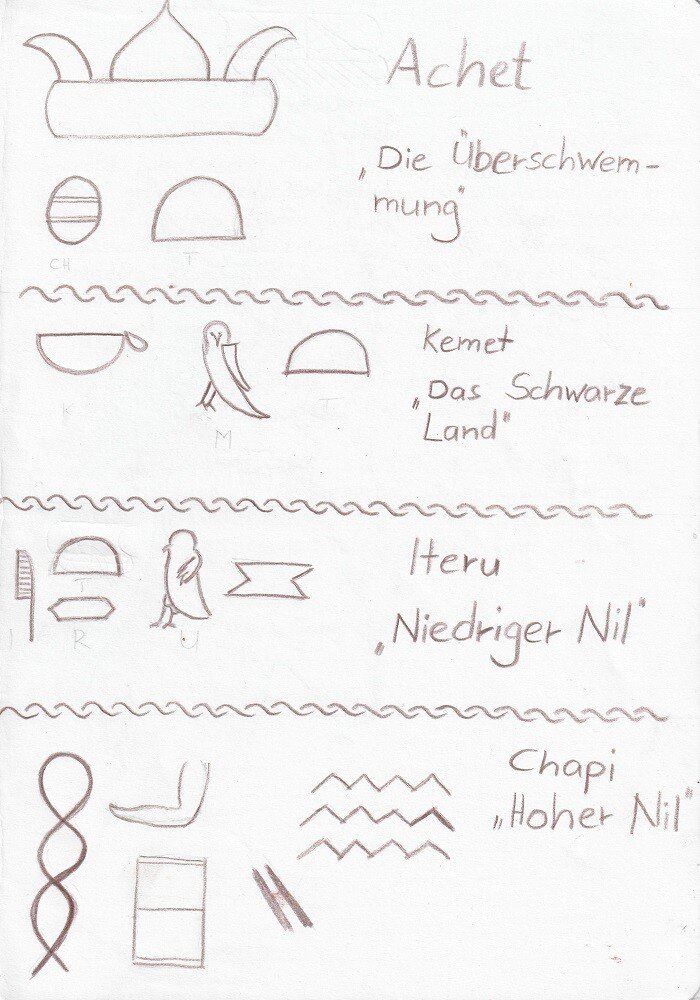 Achet
„Die Überschwem-
mung"
CH T
Kemet
„Das Schwarze
Land"
K M T
Iteru
„Niedriger Nil"
T
I R U
Chapi
„Hoher Nil"